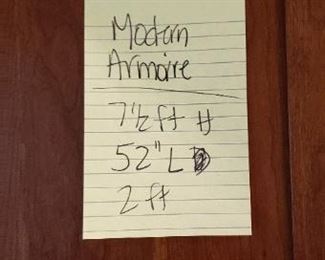 Modern
Armoire
7 1/2 ft H
52" L
2 ft